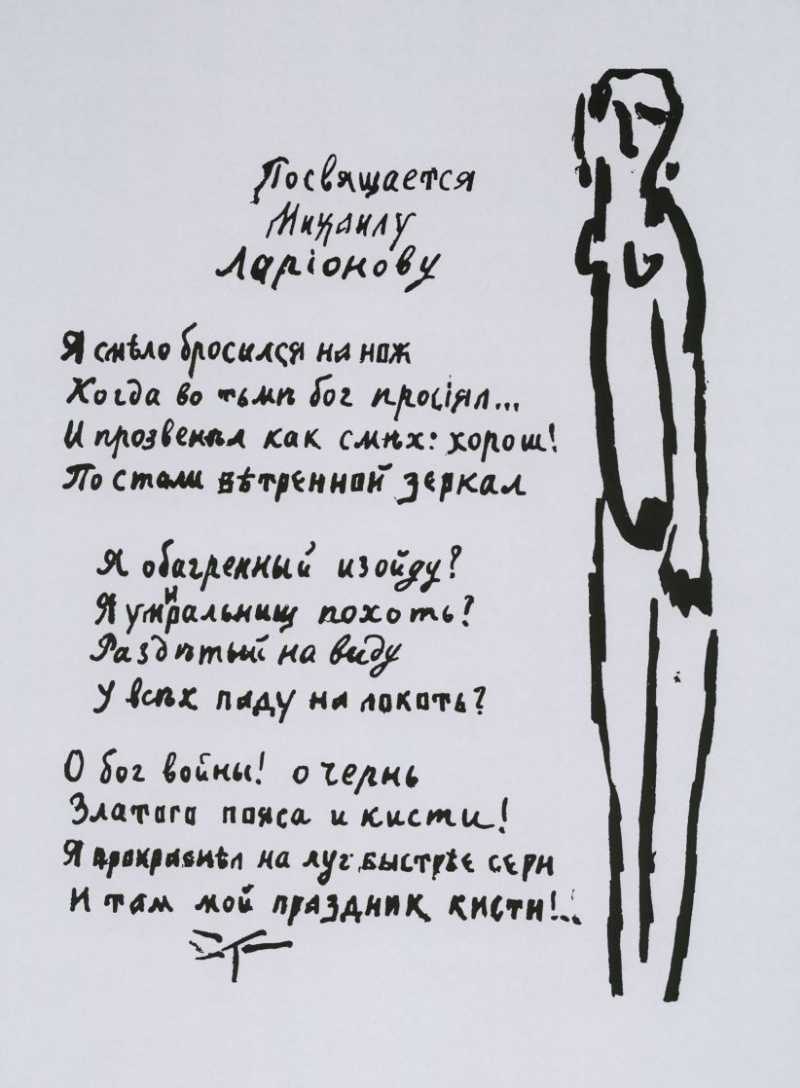 Посвящается
Михаилу
Ларіонову
Я смѣло бросился на нож
Когда во тьмѣ бог просіял...
И прозвенѣл как смѣх: хорош!
По стали вѣтренной зеркал
Я обагренный изойду?
Я похоть?
Раздѣтый на виду
У всѣх паду на локоть?
О бог войны! о чернь
Златого пояса и кисти!
Я на луг быстрѣе серн
И там мой праздник кисти!..